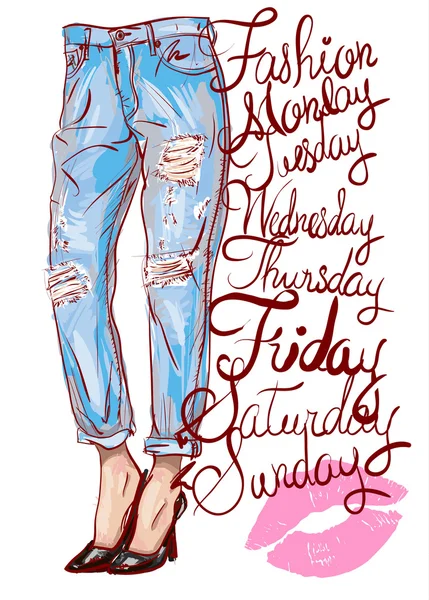 Fashion
Monday
Tuesday
Wednesday
Thursday
Friday
Saturday
Sunday